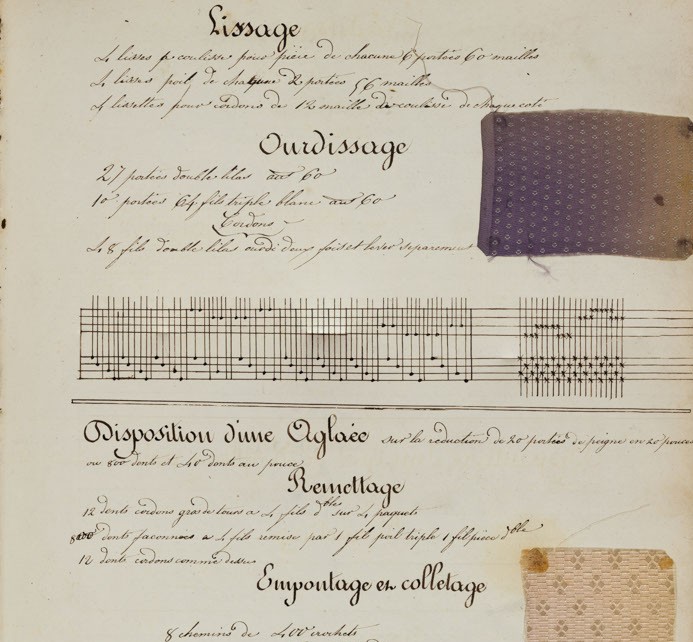 Lissage
4 lisses à coulisse pour pièce de chacune 6 portées 60 mailles
4 lisses poil de chaqune 2 portées 56 mailles
4 lissettes pour cordons de 12 maille de coulisse de chaque coté
Ourdissage
27 portées double lilas aut 60
10 portées 64 fils triple blanc aut 60
Cordons
48 fils double lilas ourdi deux fois et lever separement
Disposition d'une Aglaée sur la reduction de 20 portées de peigne en 20 pouces
ou 800 dents et 40 dents au pouce
Remettage
12 dents cordons gros de tours a 4 fils dble sur 4 paquets
dents faconnees a 4 fils remise par 1 fil poil triple 1 fil piece dble
12 dents cordons comme dessus
Empoutage et colletage
8 chemins de 400 crochets